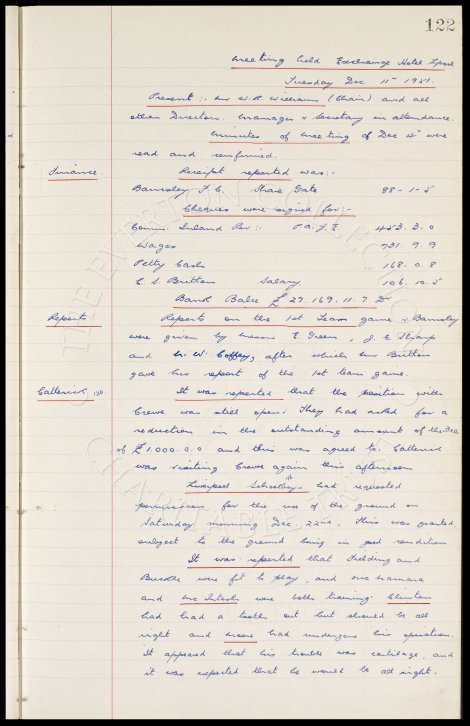 122
Meeting held Exchange Hotel L'pool
Tuesday Dec 11th 1951.
Present :- Mr W. R. Williams (Chair) and all
other Directors. Manager & Secretary in attendance.
Minutes of Meeting of Dec 4th were
read and confirmed.
Finance. Receipt reported was :-
Barnsley F.C. Share Gate 88 - 1 - 5
Cheques were signed for :-
Comm. Inland Rev :- P.A.Y.E. 453. 3. 0
Wages 731. 9. 9
Petty Cash 168. 0. 8
C. S. Britton Salary 106. 10. 5
Bank Balce £ 27.169. 11. 7 Dr
Reports Reports on the 1st Team game v Barnsley
were given by Messrs E. Green, J. C. Sharp
and Mr. W. Coffey, after which Mr Britton
gave his report of the 1st team game.
Catterick It was reported that the position with
Crewe was still open. They had asked for a
reduction in the outstanding amount of the Fee
of £1.000.0.0 and this was agreed to. Catterick
was visiting Crewe again this afternoon
Liverpool Schoolboys had requested
permission for the use of the ground on
Saturday morning Dec. 22nd. This was granted
subject to the ground being in good condition
It was reported that Fielding and
Buckle were fit to play, and McNamara
and McIntosh were both training. Clinton
had had a tooth out but should be all
right and Moore had undergone his operation.
It appeared that his trouble was cartilage, and
it was expected that he would be all right.
THE EVERTON COLLECTION
CHARITABLE TRUST